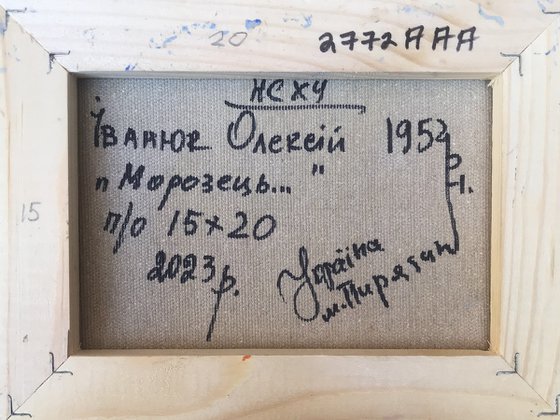 20 2772AAA
НСХУ
Іванюк Олексій 1952 р.н.
"Морозець..."
п/о 15×20
2023 р.
Україна
м. Пирятин
15